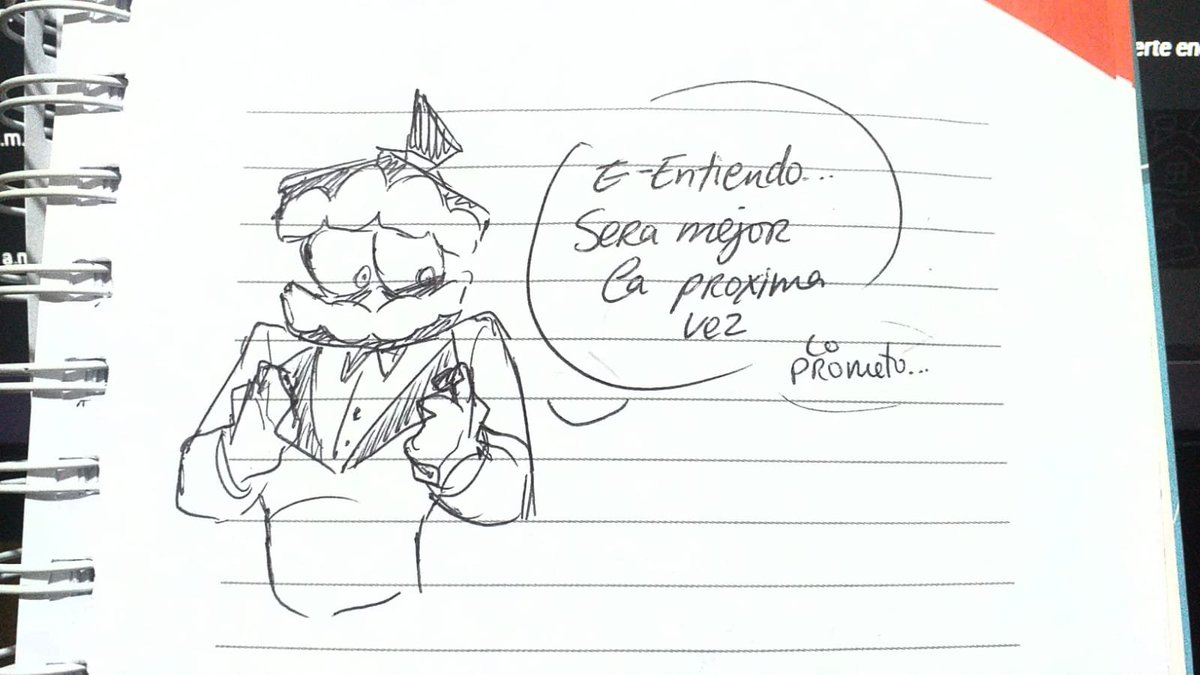 E-Entiendo...
Sera mejor
la proxima
vez
Lo
Prometo...
erte en
.m.
a.m